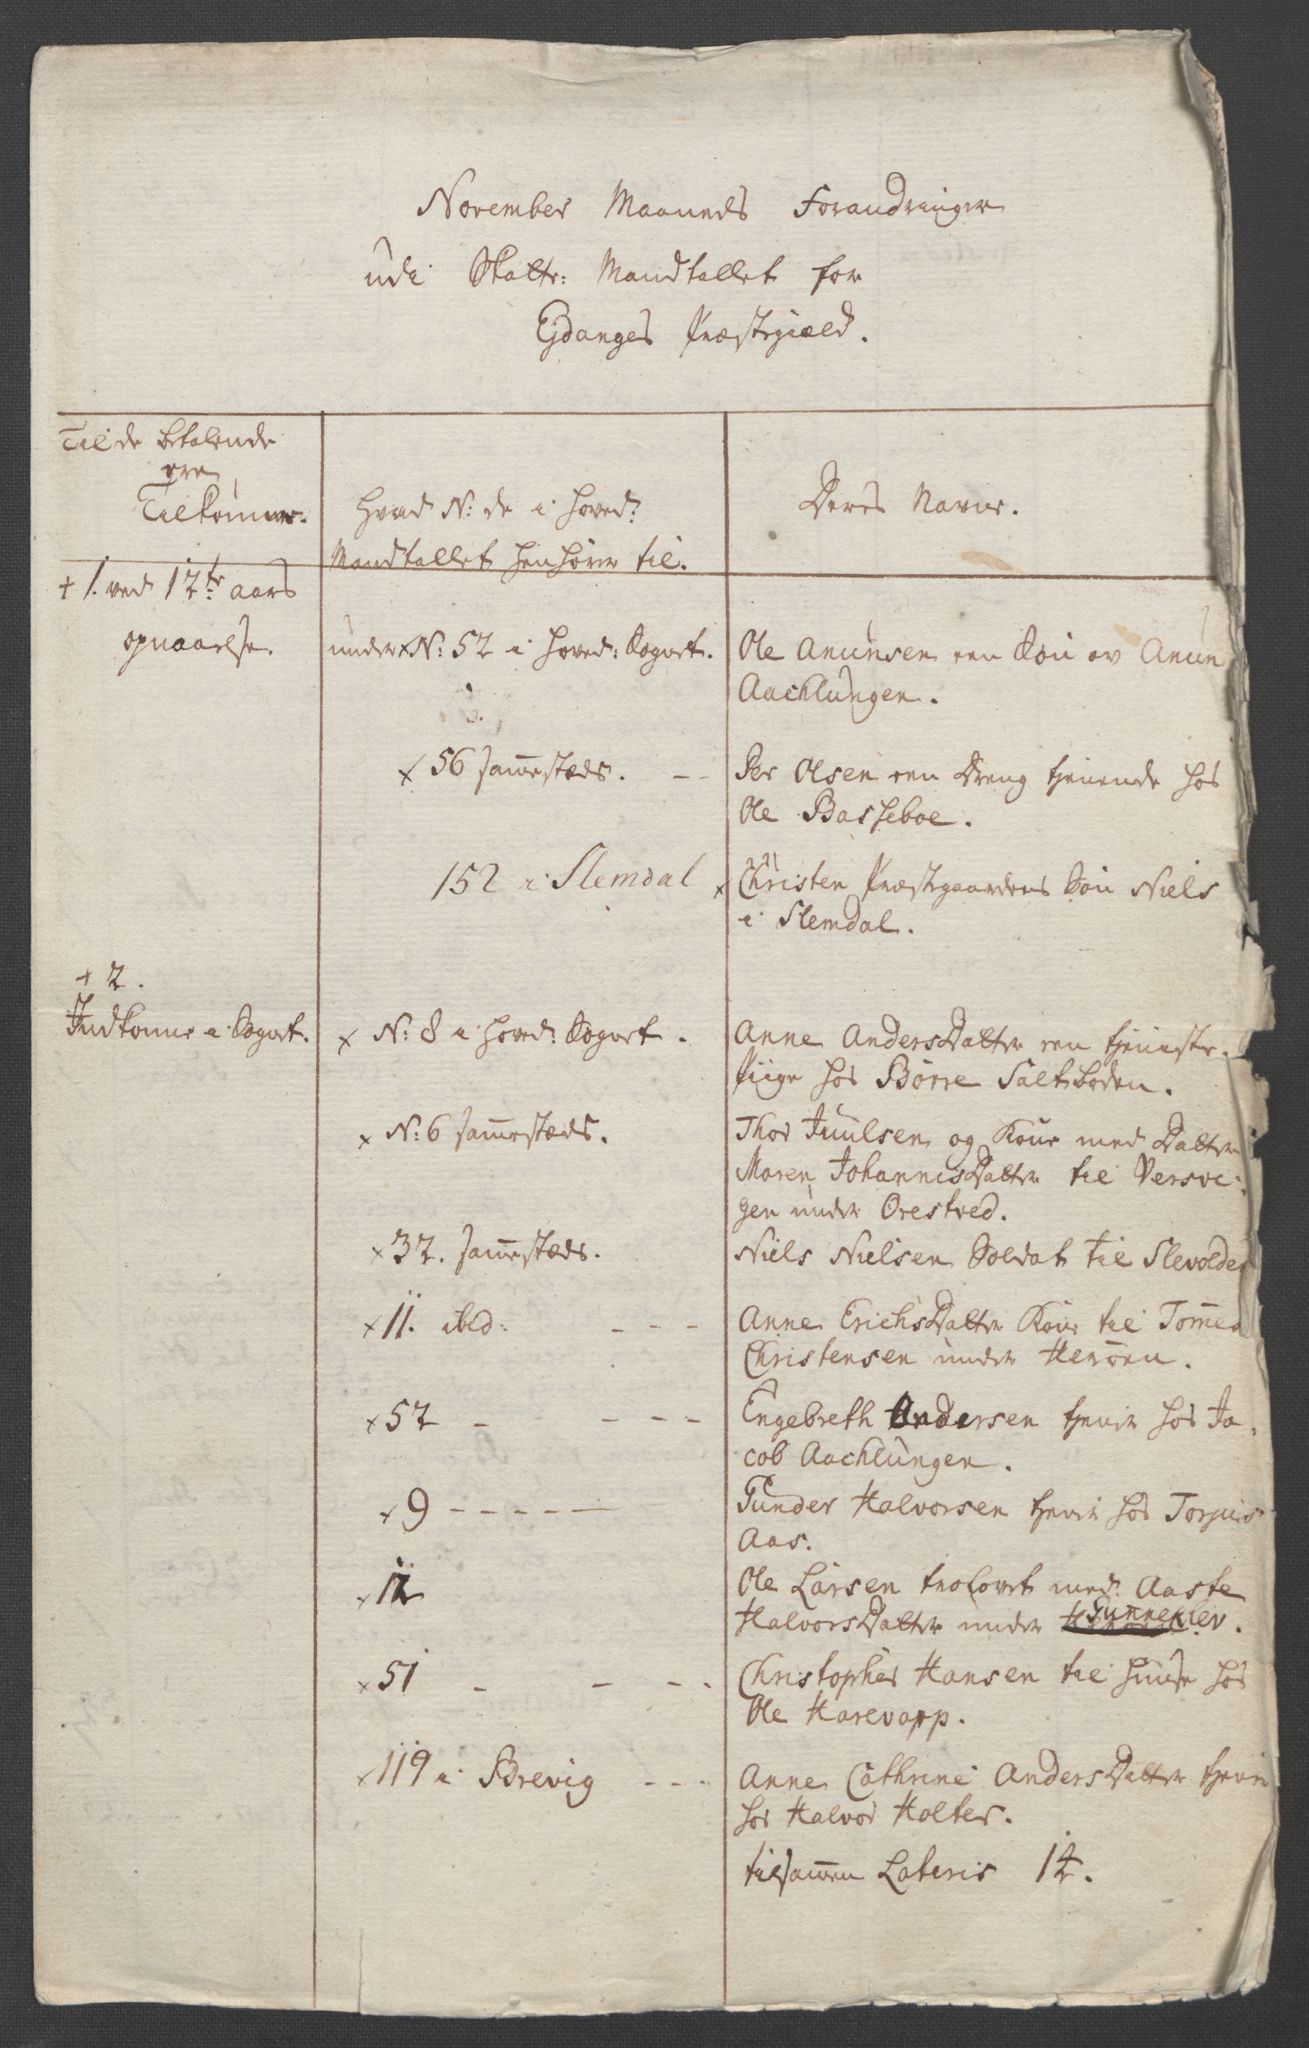 November Maaneds Forandringer
udi Skatte: Mandtallet for
Ejdanges Præstegiæld.
Til de betalende
ere
Tilkomne.
Hvad N: de i Hoved:
Mandtallet henhører til.
Deres Navne.
+ 1. ved 12te aars
opnaaelse.
under x N: 52 i Hoved: Sognet.
Ole Anunsen een Søn av Anun
Aachlungen.
x 56 sammestæds. - -
Per Olsen een Dreng tienende hos
Ole Basseboe.
152 i Slemdal
x Christen Præstegaardens Søn Niels
i Slemdal.
+ 2.
Indkomne i Sognet.
x N: 8 i Hoved: Sognet.
Anne AndersDatter een tieneste-
Piige hos Børre Saltboden.
x N: 6 sammestæds.
Thor Juulsen og Kone med Datter
Maren JohannisDatter til Versvi-
gen under Orestved.
x 32. sammestæds.
Niels Nielsen Soldat til Slevolden
x 11. ibd: - - -
Anne ErichsDatter Kone til Tommes
Christensen under Herøen.
x 52 - - - - -
Engebreth Andersen tiener hos Ja-
cob Aachlungen.
x 9 - - - - - -
Gunder Halvorsen tienir hos Torjus
Aas.
x 12
Ole Larsen trolovet med Aaste
HalvorsDatter under Gunneklev.
x 51 - - - -
Christopher Hansen til Huuse hos
Ole Harevapp.
x 119 i Brevig - - -
Anne Cathrine AndersDatter tienir
hos Halvor Holter.
tilsammen Lateris 14.